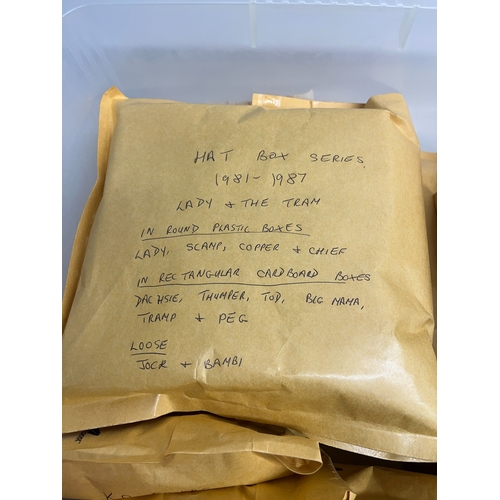 HAT BOX SERIES
1981-1987
LADY & THE TRAM
IN ROUND PLASTIC BOXES
LADY, SCAMP, COPPER & CHIEF
IN RECTANGULAR CARDBOARD BOXES
DACHSIE, THUMPER, TOD, BIG MAMA,
TRAMP & PEG
LOOSE
JOCK & BAMBI